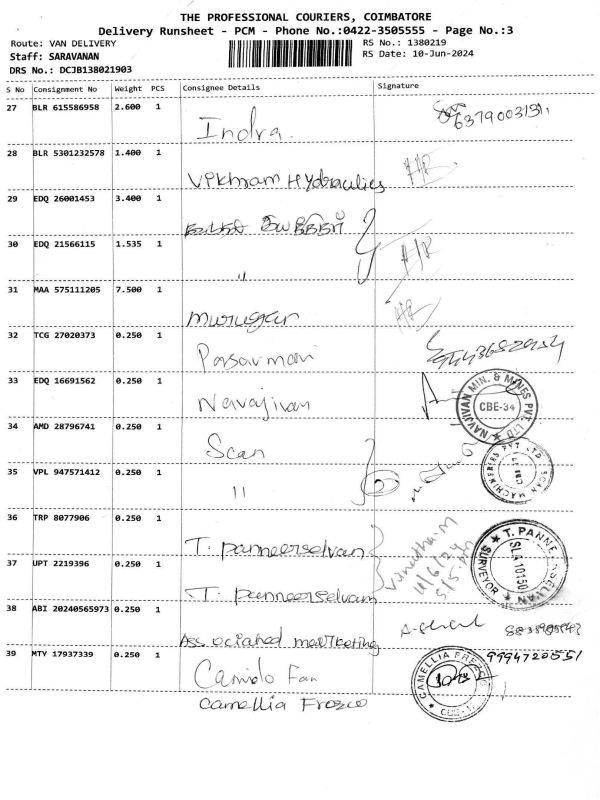 THE PROFESSIONAL COURIERS, COIMBATORE
Delivery Runsheet - PCM - Phone No.:0422-3505555 - Page No.:3
Route: VAN DELIVERY
RS No.: 1380219
Staff: SARAVANAN
RS Date: 10-Jun-2024
DRS No.: DCJB138021903
S No Consignment No Weight PCS Consignee Details Signature
27 BLR 615586958 2.600 1 Indra.
28 BLR 5301232578 1.400 1 Vikhnam Hydraulics
29 EDQ 26001453 3.400 1
30 EDQ 21566115 1.535 1 "
31 MAA 575111205 7.500 1 Murugan
32 TCG 27020373 0.250 1
33 EDQ 16691562 0.250 1 Navajivan
NAVJIVAN MIN. & MINES PVT. LTD
CBE-34
34 AMD 28796741 0.250 1 Scan
35 VPL 947571412 0.250 1 "
SCAN MACHINERIES PVT LTD
36 TRP 8077906 0.250 1 T. Panneerselvan
37 UPT 2219396 0.250 1 T. Panneerselvam
T. PANNEERSELVAN
SLA 10150
SURVEYOR
38 ABI 20240565973 0.250 1 Associated marketing
39 MTY 17937339 0.250 1
9994720551
Camellia Frozco